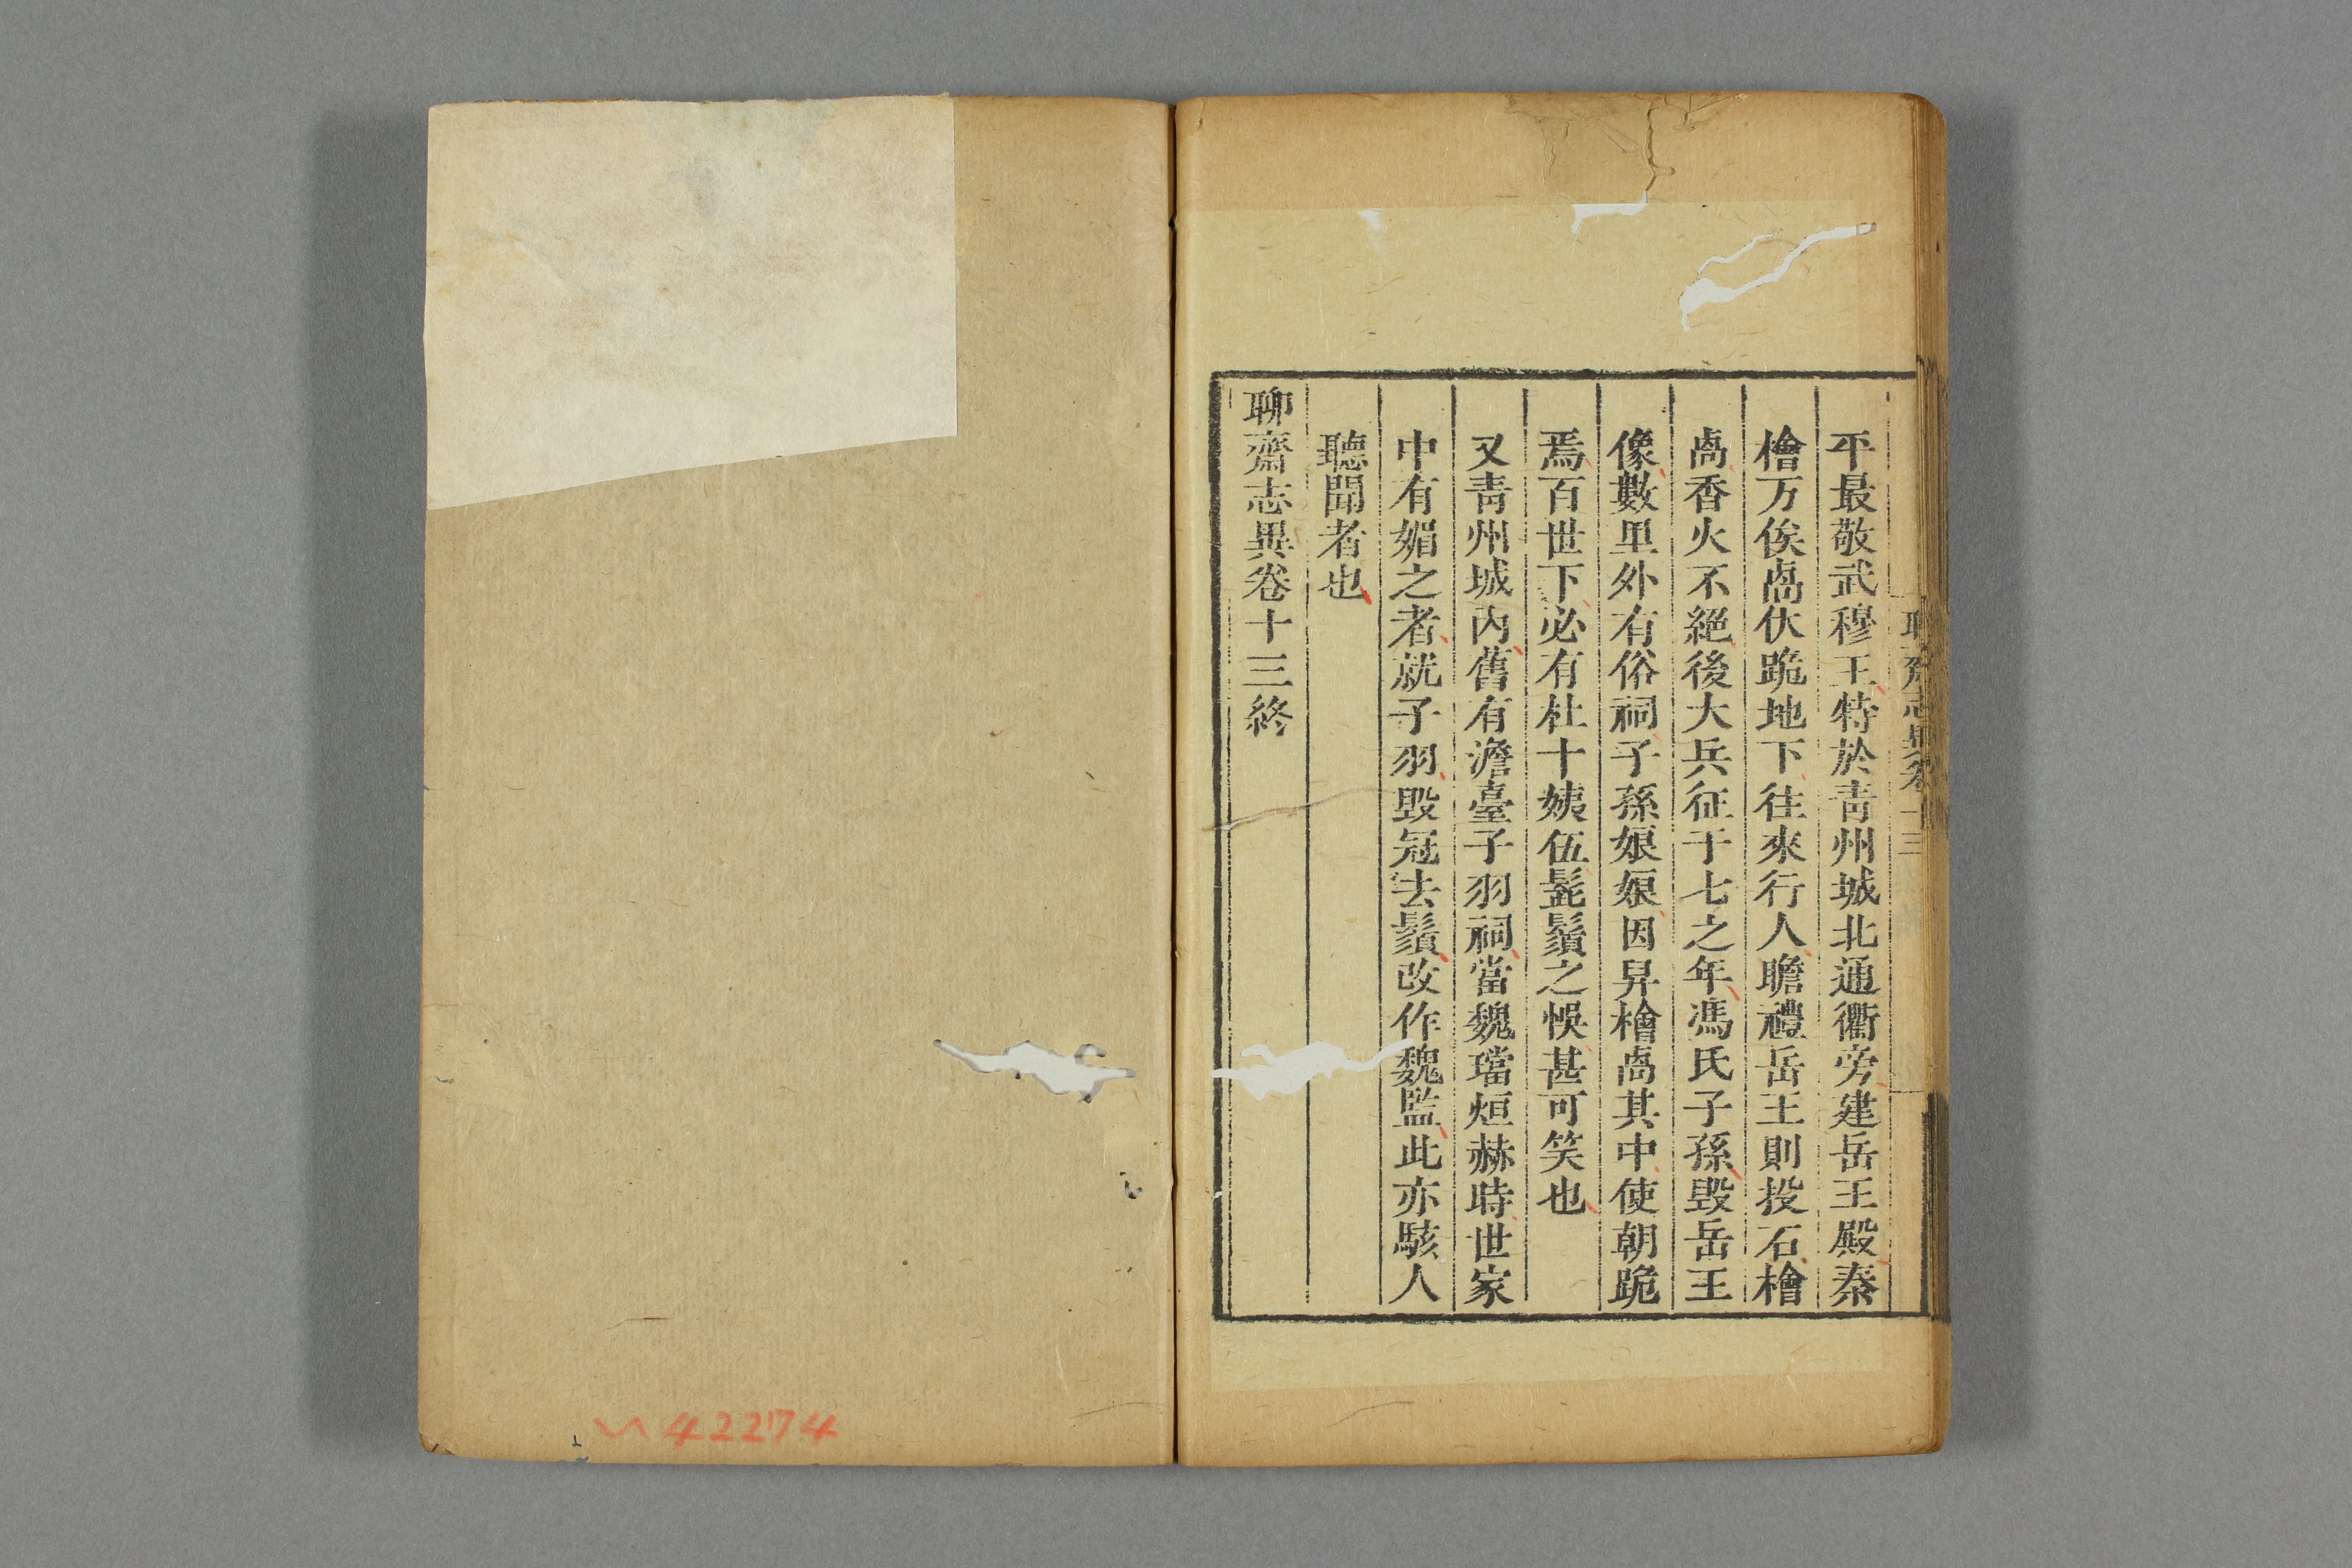 聊齋志異卷十三
平最敬武穆王特於青州城北通衢旁建岳王殿秦
檜万俟卨伏跪地下往來行人瞻禮岳王則投石檜
卨香火不絕後大兵征于七之年馮氏子孫毀岳王
像數里外有俗祠子孫娘娘因舁檜卨其中使朝跪
焉百世下必有杜十姨伍髭鬚之悞甚可笑也
又青州城內舊有澹臺子羽祠當魏璫烜赫時世家
中有媚之者就子羽毀冠去鬚改作魏監此亦駭人
聽聞者也
聊齋志異卷十三終
42274